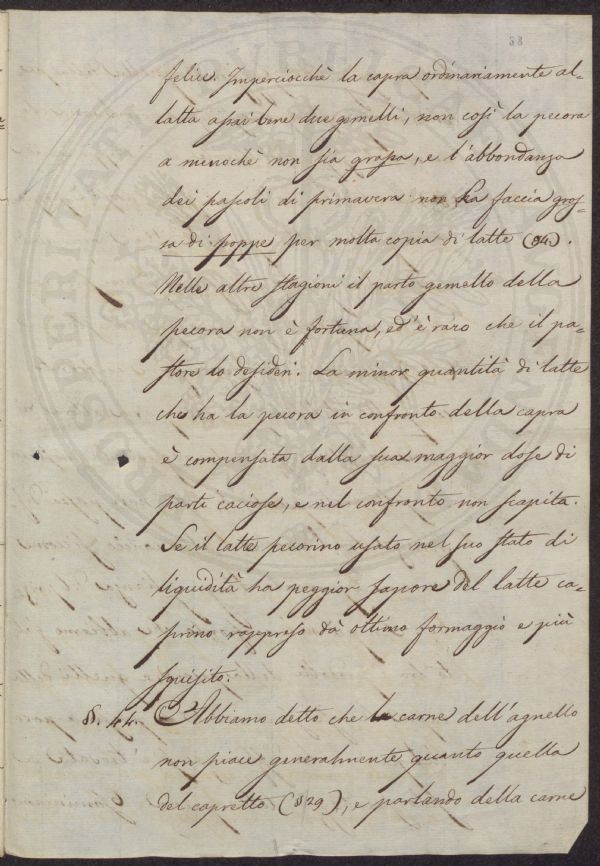 88
felice. Imperciocchè la capra ordinariamente al=
latta assai bene due gemelli, non così la pecora
a menochè non sia grassa, e l'abbondanza
dei pascoli di primavera non la faccia gros=
sa di poppe per molta copia di latte (84).
Nelle altre stagioni il parto gemello della
pecora non è fortuna, ed'è raro che il pa=
store lo desideri. La minor quantità di latte
che ha la pecora in confronto della capra
è compensata dalla sua maggior dose di
parti caciose, e nel confronto non scapita.
Se il latte pecorino usato nel suo stato di
liquidità ha peggior sapore del latte ca=
prino rappreso dà ottimo formaggio e più
squisito.
§. 44. Abbiamo detto che la carne dell'agnello
non piace generalmente quanto quella
del capretto (§29), e parlando della carne